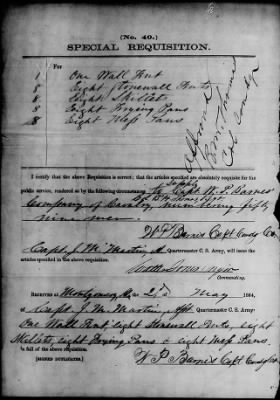 (No. 40.)
SPECIAL REQUISITION.
For
1 One Wall Tent
8 Eight Stonewall Tents
8 Eight Skillets
8 Eight Frying Pans
8 Eight Mess Pans
Approved
I certify that the above Requisition is correct; that the articles specified are absolutely requisite for
the public service, rendered so by the following circumstances: To supply Capt W. P. Barnes
Company of Cavalry, numbering fifty
nine men
W P Barnes Capt Comdg Co
Capt J. M. Martin, Quartermaster C. S. Army, will issue the
articles specified in the above requisition.
Commanding.
Received at Montgomery the 2d May 1864,
of Capt J. M. Martin Quartermaster C. S. Army:
One Wall Tent, eight Stonewall Tents, eight
Skillets, eight Frying Pans & eight Mess Pans.
In full of the above requisition.
W P Barnes Capt Comdg Co
[SIGNED DUPLICATES.]